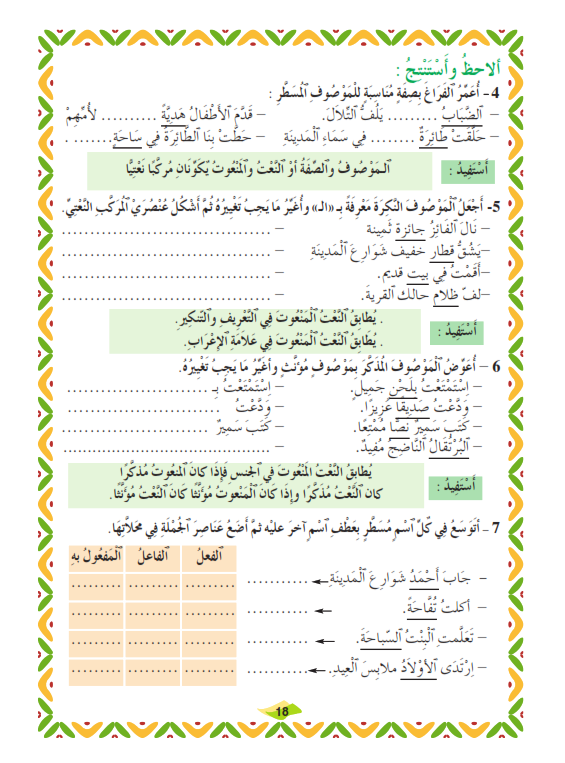 ألاحظُ وأَسْتَنْتِجُ :
4 - أُعَمِّرُ ٱلفَرَاغَ بِصِفَةٍ مُنَاسِبَةٍ لِلْمَوْصُوفِ ٱلمُسَطَّرِ :
– ٱلضَّبَابُ ......... يَلُفُّ ٱلتِّلَالَ. – قَدَّمَ ٱلأَطْفَالُ هَدِيَّةً .......... لأُمِّهِمْ
– حَلَّقَتْ طَائِرَةٌ ........ فِي سَمَاءِ ٱلْمَدِينَةِ – حَطَّتْ بِنَا ٱلطَّائِرَةُ فِي سَاحَةٍ........ .
أَسْتَفِيدُ : ٱلـمَوْصُوفُ وٱلصِّفَةُ أوْ ٱلنَّعْتُ وٱلْمَنْعُوتُ يُكَوِّنَانِ مُركَّبًا نَعْتِيًّا
5- أَجْعَلُ ٱلْمَوْصُوفَ ٱلنَّكِرَةَ مَعْرِفَةً بِـ «الـ» وأُغَيِّرُ مَا يَجِبُ تَغْيِيرُهُ ثُمَّ أَشْكُلُ عُنْصُرَيْ ٱلْمُرَكَّبِ ٱلنَّعْتِيِّ.
– نَالَ ٱلفَائِزُ جائزة ثَمِينة – ....................................
–يَشُقُّ قطار خفيف شَوَارِعَ ٱلْمَدِينَةِ – ....................................
–أَقَمْتُ فِي بيت قديم. – ....................................
–لفّ ظلام حالك القريةَ. – ....................................
أَسْتَفِيدُ : . يُطَابِقُ ٱلنَّعْتُ ٱلْمَنْعُوتَ فِي ٱلتَّعْرِيفِ وٱلتَّنكِيرِ.
. يُطَابِقُ ٱلنَّعْتُ ٱلْمَنْعُوتَ فِي عَلَامَةِ ٱلإِعْرَابِ.
6 – أُعَوِّضُ ٱلْمَوْصُوفَ ٱلمُذَكَّرَ بِمَوْصُوفٍ مُؤنَّثٍ وأُغَيِّرُ مَا يَجِبُ تَغْيِيرُهُ.
– اِسْتَمْتَعْتُ بِلَحْنٍ جَمِيلٍ. – اِسْتَمْتَعْتُ بِـ ........................
– وَدَّعْتُ صَدِيقًا عَزِيزًا. – وَدَّعْتُ ..........................
– كَتَبَ سَمِيرٌ نَصًّا مُمْتِعًا. – كَتَبَ سَمِيرٌ .........................
– ٱلبُرْتُقَالُ ٱلنَّاضِجُ مُفِيدٌ. – ....................................
أَسْتَفِيدُ : يُطَابِقُ ٱلنَّعْتُ ٱلمَنْعُوتَ فِي ٱلجنسِ فَإِذَا كَانَ ٱلمنعوتُ مُذكَّرًا
كان ٱلنَّعْتُ مُذكَّرًا وإِذَا كَانَ ٱلْمَنْعُوتُ مُؤنَّثًا كَانَ ٱلنَّعْتُ مُؤنَّثًا.
7 - أتَوَسَّعُ فِي كلِّ اسْمٍ مُسَطَّرٍ بِعَطْفِ اسْمٍ آخرَ عليْه ثمَّ أضَعُ عَنَاصِرَ ٱلْجُمْلَةِ فِي مَحَلاَّتِهَا.
ٱلفعلُ ٱلفَاعلُ ٱلْمَفعُولُ بهِ
– جَابَ أَحْمَدُ شَوَارِعَ ٱلْمَدِينَةِ ........... ......... ......... .........
– أكلتُ تُفَّاحَةً. ........... ......... ......... .........
– تَعَلَّمتِ ٱلْبِنْتُ ٱلسّبَاحَةَ. ........... ......... ......... .........
– اِرْتَدَى ٱلأَوْلاَدُ ملابسَ ٱلْعِيدِ. ........... ......... ......... .........
18